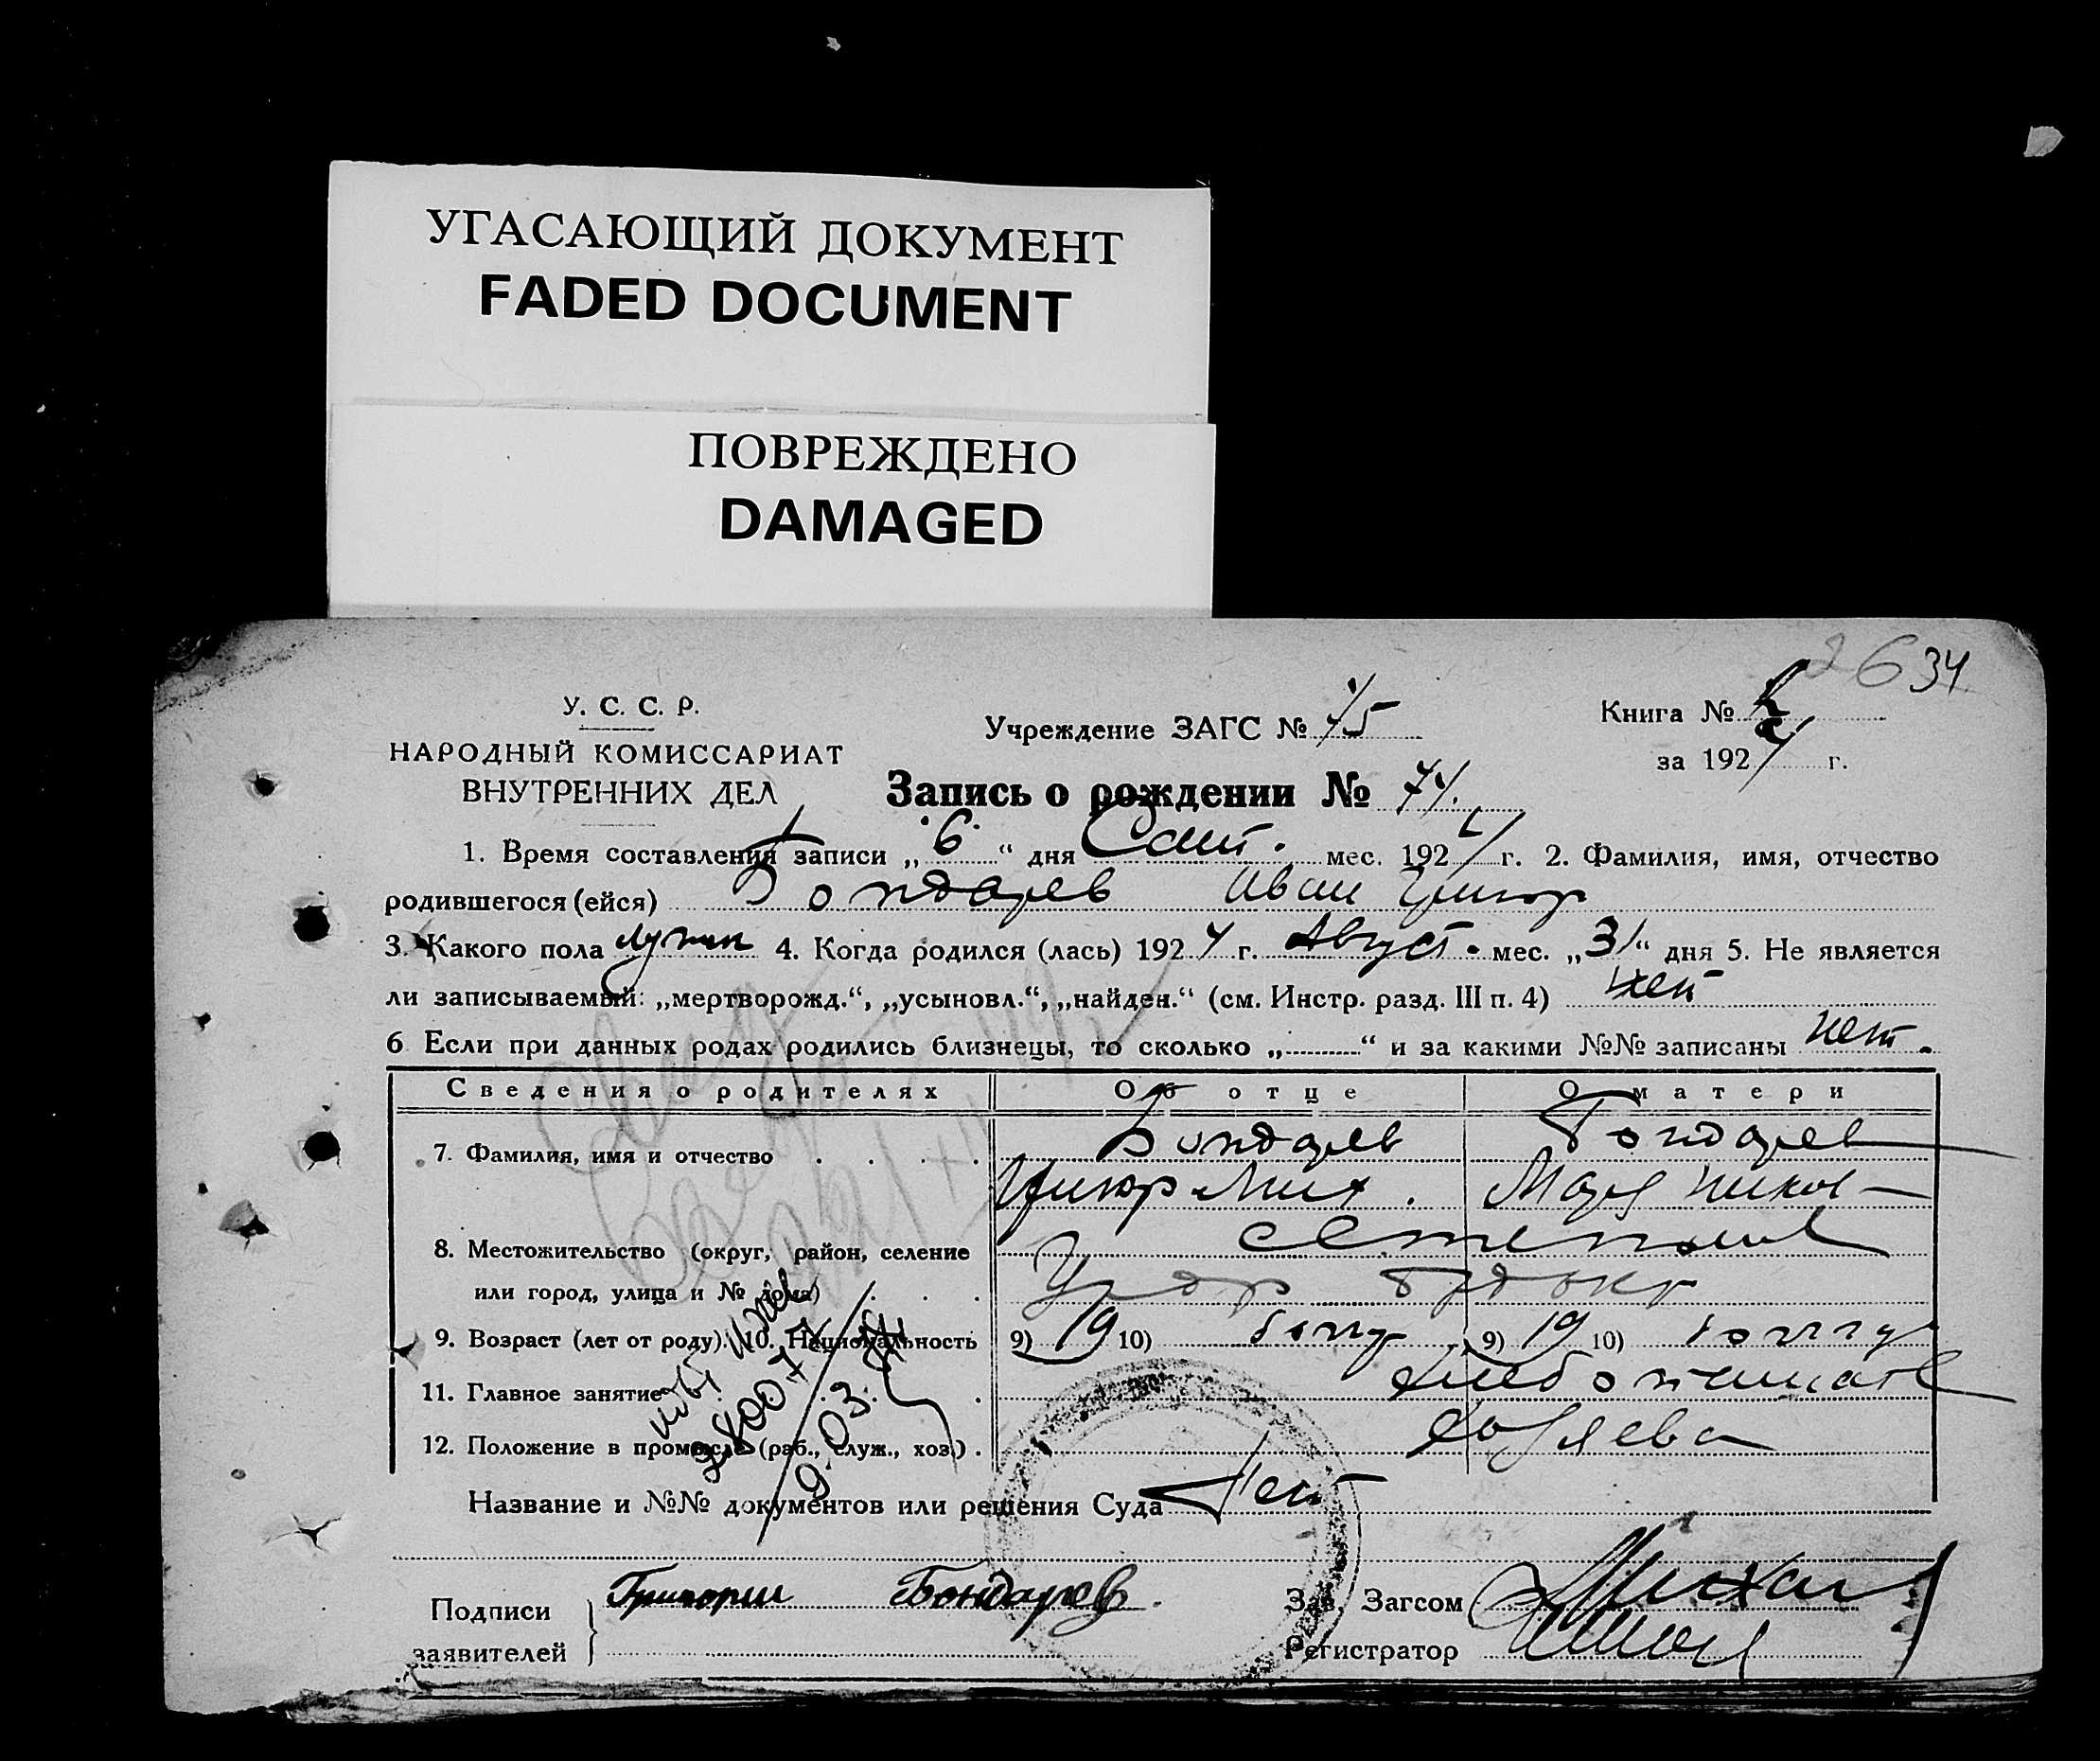 УГАСАЮЩИЙ ДОКУМЕНТ
FADED DOCUMENT
ПОВРЕЖДЕНО
DAMAGED
26 34
У. С. С. Р.
НАРОДНЫЙ КОМИССАРИАТ
ВНУТРЕННИХ ДЕЛ
Учреждение ЗАГС № 15
Книга №
за 1924 г.
Запись о рождении № 74.
1. Время составления записи „ 6 “ дня Сент. мес. 1924 г. 2. Фамилия, имя, отчество
родившегося (ейся) Бондарев Иван Григор
3. Какого пола мужск 4. Когда родился (лась) 1924 г. Август. мес. „31“ дня 5. Не является
ли записываемый: „мертворожд.“, „усыновл.“, „найден.“ (см. Инстр. разд. III п. 4) нет
6 Если при данных родах родились близнецы, то сколько „..........“ и за какими №№ записаны нет.
Сведения о родителях Об отце О матери
7. Фамилия, имя и отчество Бондарев Бондарев
Григор Мих. Мария Никол
8. Местожительство (округ, район, селение
или город, улица и № дома)
9. Возраст (лет от роду). 10. Национальность 9) 19 10) 9) 19 10)
11. Главное занятие хлебопашест
12. Положение в промысле (раб., служ., хоз.) хозяева
28007
9. 03.
Название и №№ документов или решения Суда нет
Подписи
заявителей
Григории Бондарев.
Зав. Загсом
Регистратор